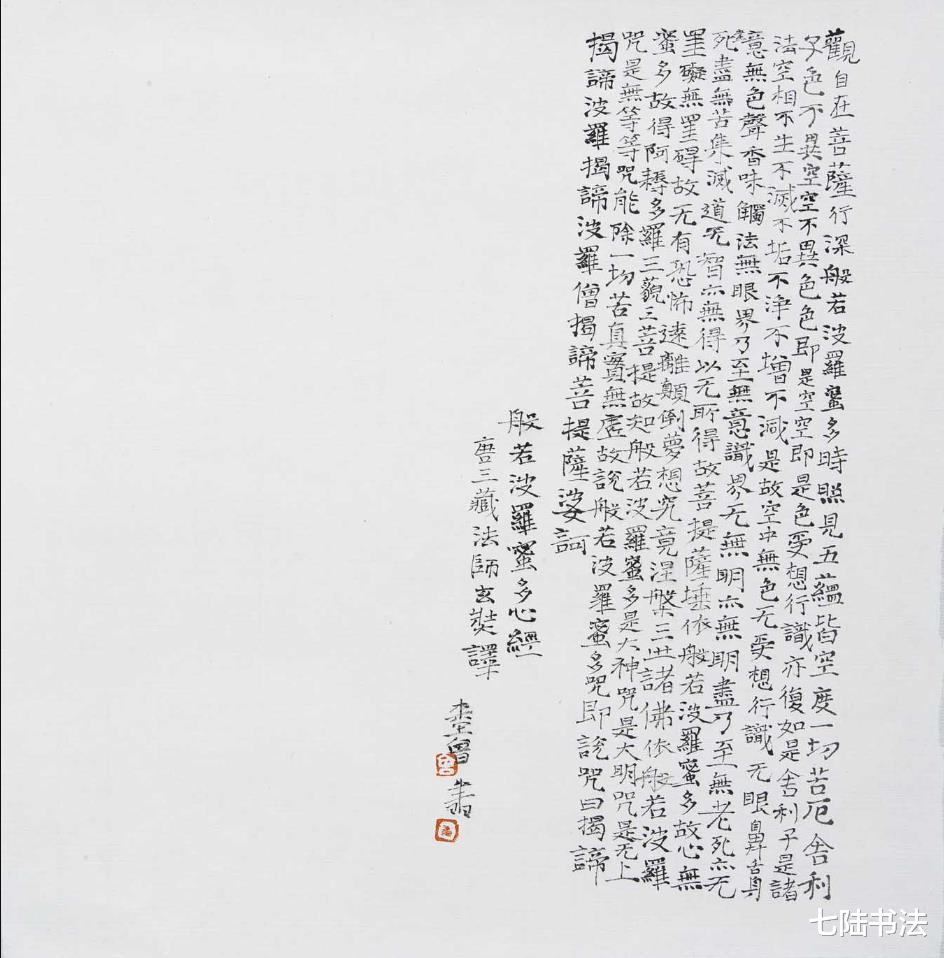 觀自在菩薩行深般若波羅蜜多時照見五蘊皆空度一切苦厄舍利
子色不異空空不異色色即是空空即是色受想行識亦復如是舍利子是諸
法空相不生不滅不垢不淨不增不減是故空中無色无受想行識无眼鼻舌身
意無色聲香味觸法無眼界乃至無意識界无無明亦無明盡乃至無老死亦无
死盡無苦集滅道无智亦無得以无所得故菩提薩埵依般若波羅蜜多故心無
罣礙無罣碍故无有恐怖遠離顛倒夢想究竟涅槃三世諸佛依般若波羅
蜜多故得阿耨多羅三藐三菩提故知般若波羅蜜多是大神咒是大明咒是无上
咒是無等等咒能除一切苦真實無虛故說般若波羅蜜多咒即說咒曰揭諦
揭諦波羅揭諦波羅僧揭諦菩提薩婆訶
般若波羅蜜多心經
唐三藏法師玄奘譯
書
七陆书法